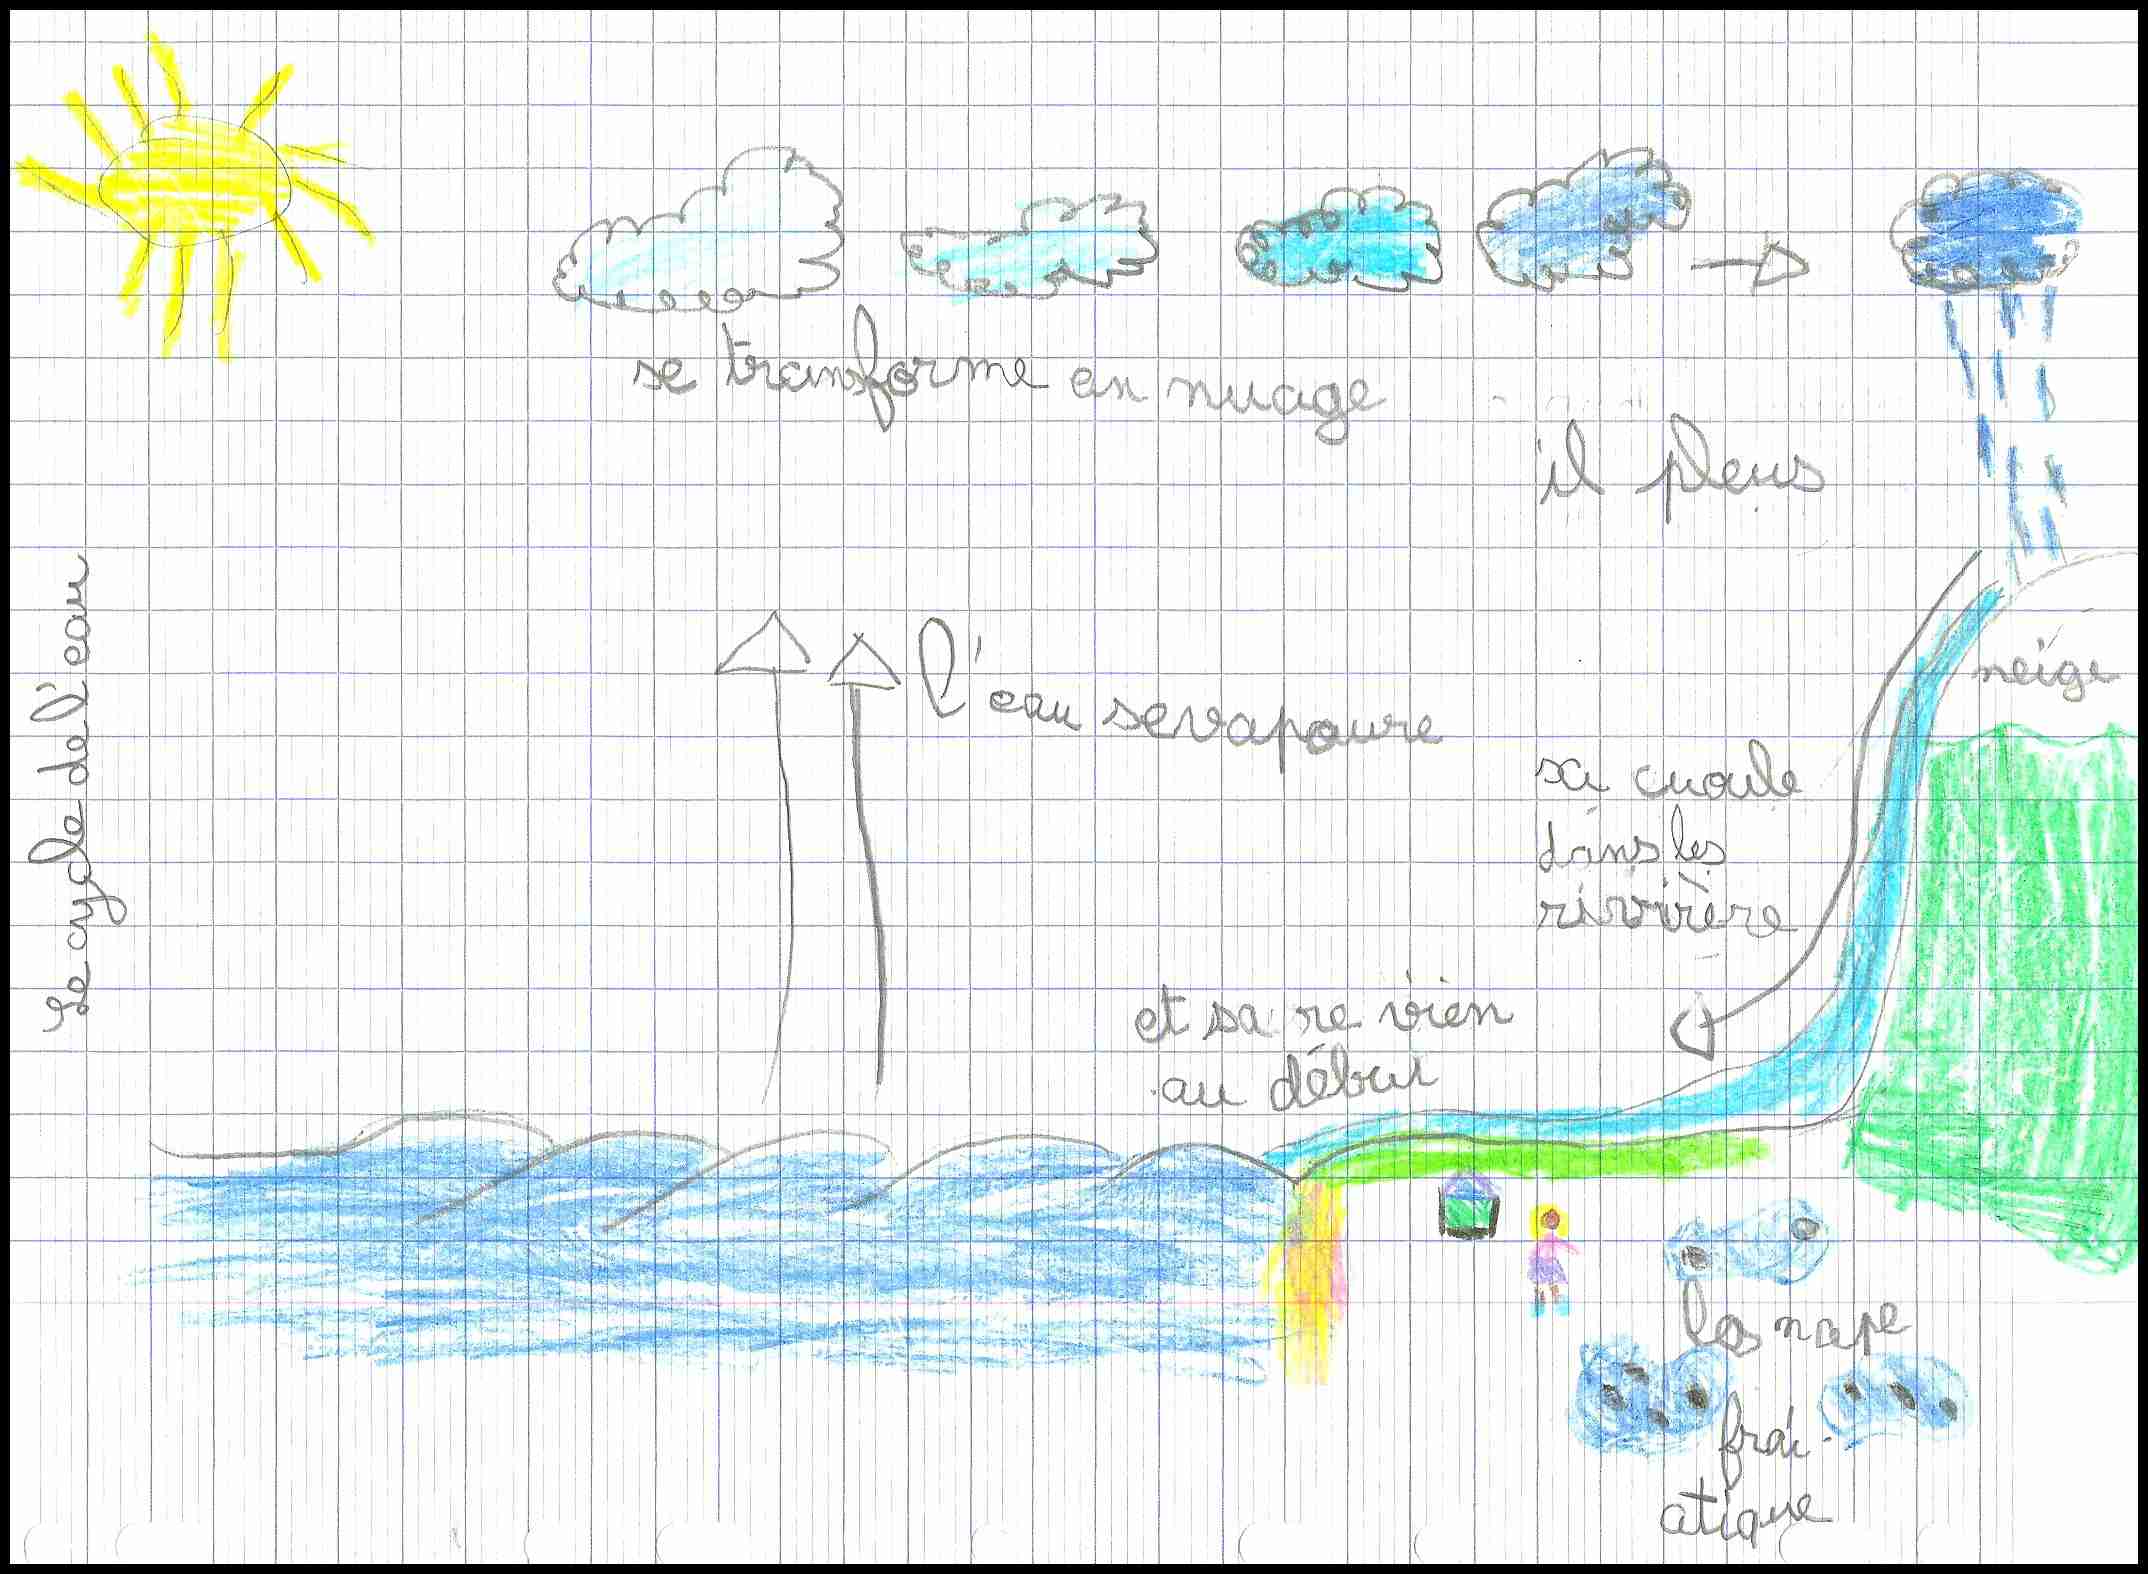 Le cycle de l'eau
se transforme en nuage
il pleus
l'eau sevapoure
neige
sa cuoule
dans les
rivvière
et sa re vien
au début
las nape
frai-
atique